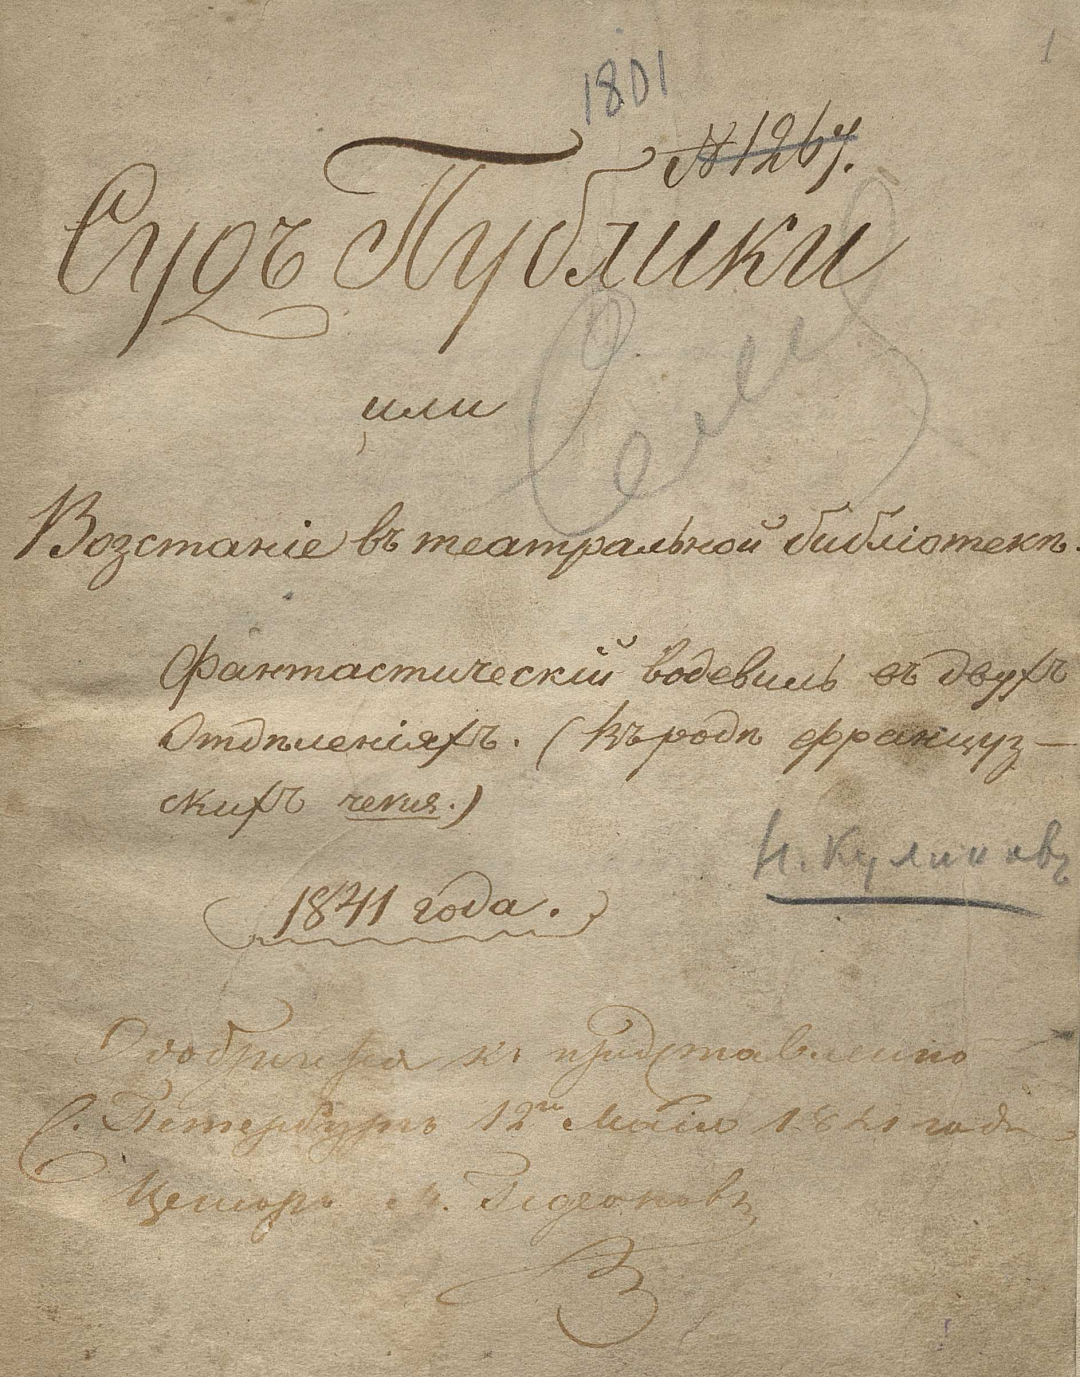 1
1801
№ 1267.
Судъ Публики
или
Возстаніе въ театральной библіотекѣ.
Фантастическій водевиль въ двухъ
Отдѣленіяхъ. (Въ родѣ француз-
скихъ
Н. Куликовъ
1841 года.
Одобряется къ представленію
С. Петербургъ 12го Маія 1841 года
Цензоръ М. Гедеоновъ